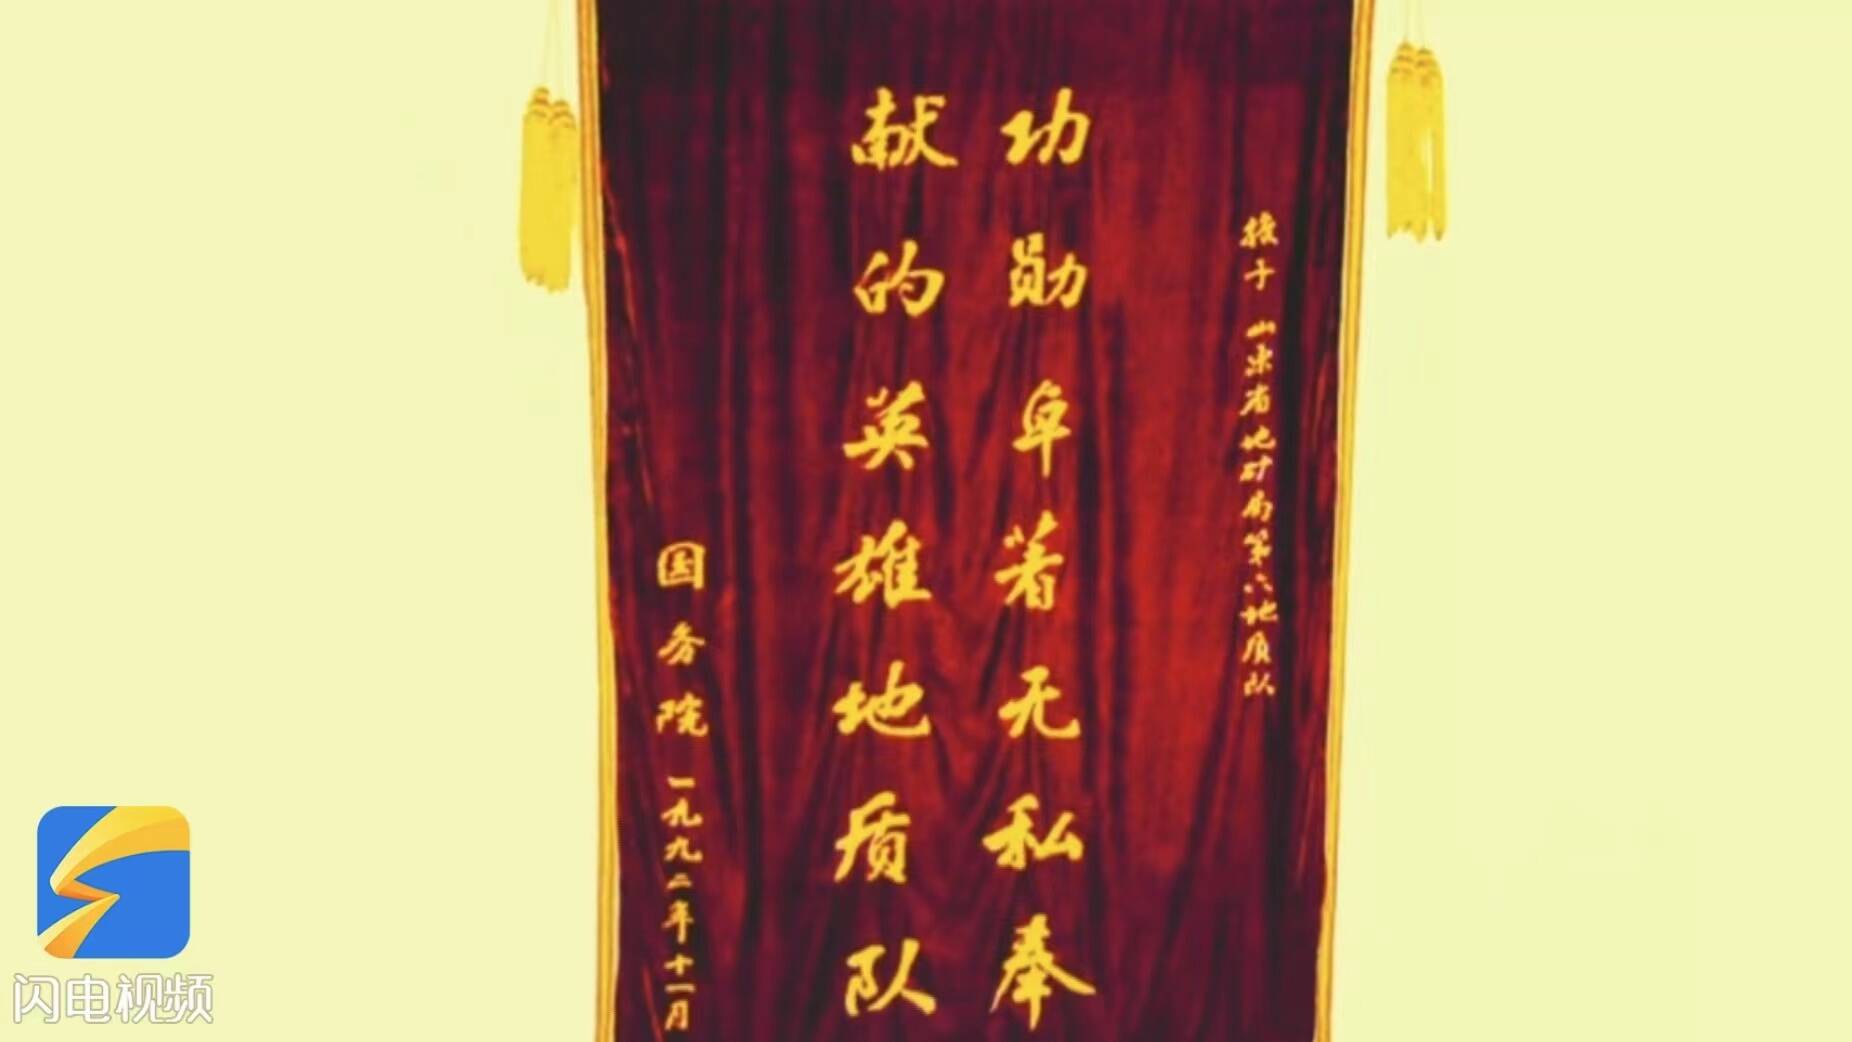 授予 山东省地矿局第六地质队
功勋卓著无私奉
献的英雄地质队
国务院 一九九二年十一月
闪电视频